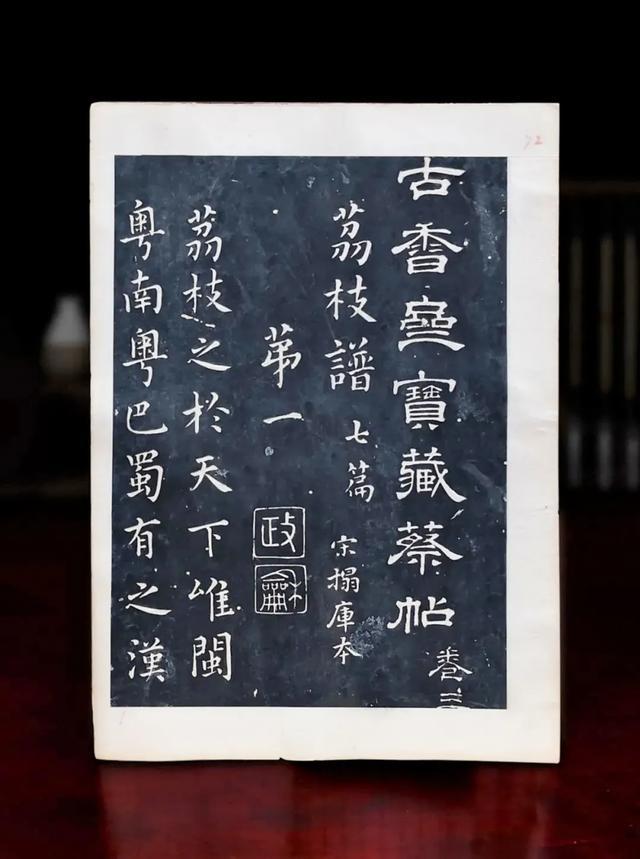 古香齋寶藏蔡帖 卷二
荔枝譜 七篇 宋搨庫本
苐一
政龢
荔枝之於天下唯閩
粵南粵巴蜀有之漢
72